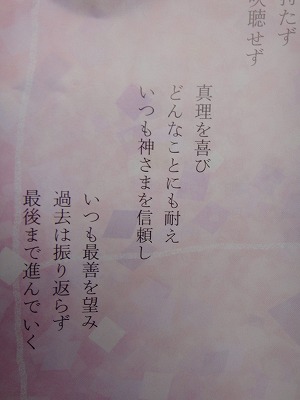 持たず
吹聴せず
真理を喜び
どんなことにも耐え
いつも神さまを信頼し
いつも最善を望み
過去は振り返らず
最後まで進んでいく